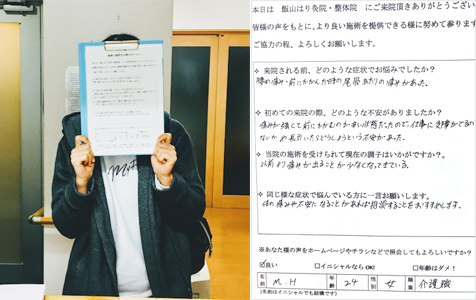 本日は 飯山はり灸院・整体院 にご来院頂きありがとうござい
皆様の声をもとに、より良い施術を提供できる様に努めて参ります
ご協力の程、よろしくお願いします。
❖ 来院される前、どのような症状でお悩みでしたか?
腰の痛み・前にかがんだ時の尾骨あたりの痛みがあった。
❖ 初めての来院の際、どのような不安がありましたか?
痛みが強くて前にかがむのがつらい状態だったので、仕事に支障がでるの
ないかや長引いたらどうしようという不安があった。
❖ 当院の施術を受けられて現在の調子はいかがですか?
以前より痛みが出ることが少なくなってきている。
❖ 同じ様な症状で悩んでいる方に一言お願いします。
体の痛みや不安になることがあれば相談することをおすすめします。
※あなた様の声をホームページやチラシなどで照会してもよろしいですか?
☑良い □イニシャルなら OK! □年齢はダメ!
名前 M.H 年齢 24 性 女 職業 介護職
(名前はイニシャルでも結構です)